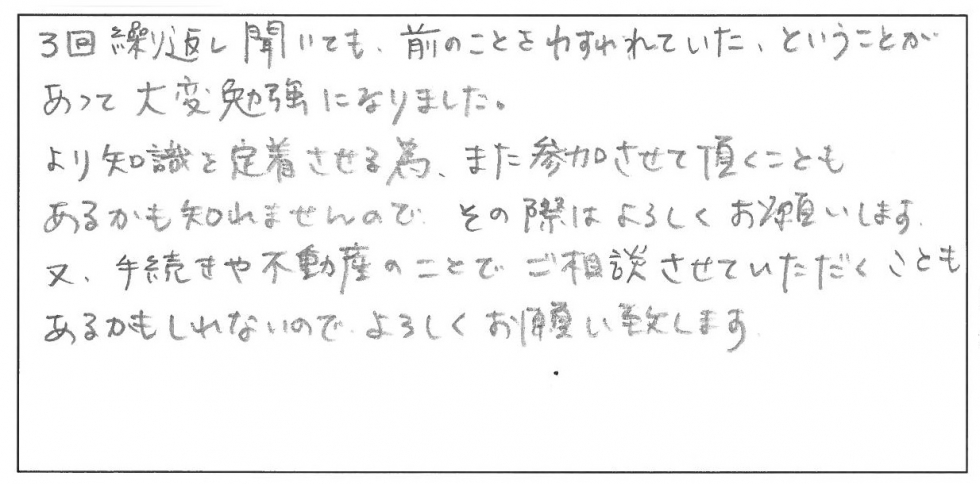 3回繰り返し聞いても、前のことをわすれれていた、ということが
あって大変勉強になりました。
より知識を定着させる為、また参加させて頂くことも
あるかも知れませんので、その際はよろしくお願いします。
又、手続きや不動産のことでご相談させていただくことも
あるかもしれないので、よろしくお願い致します